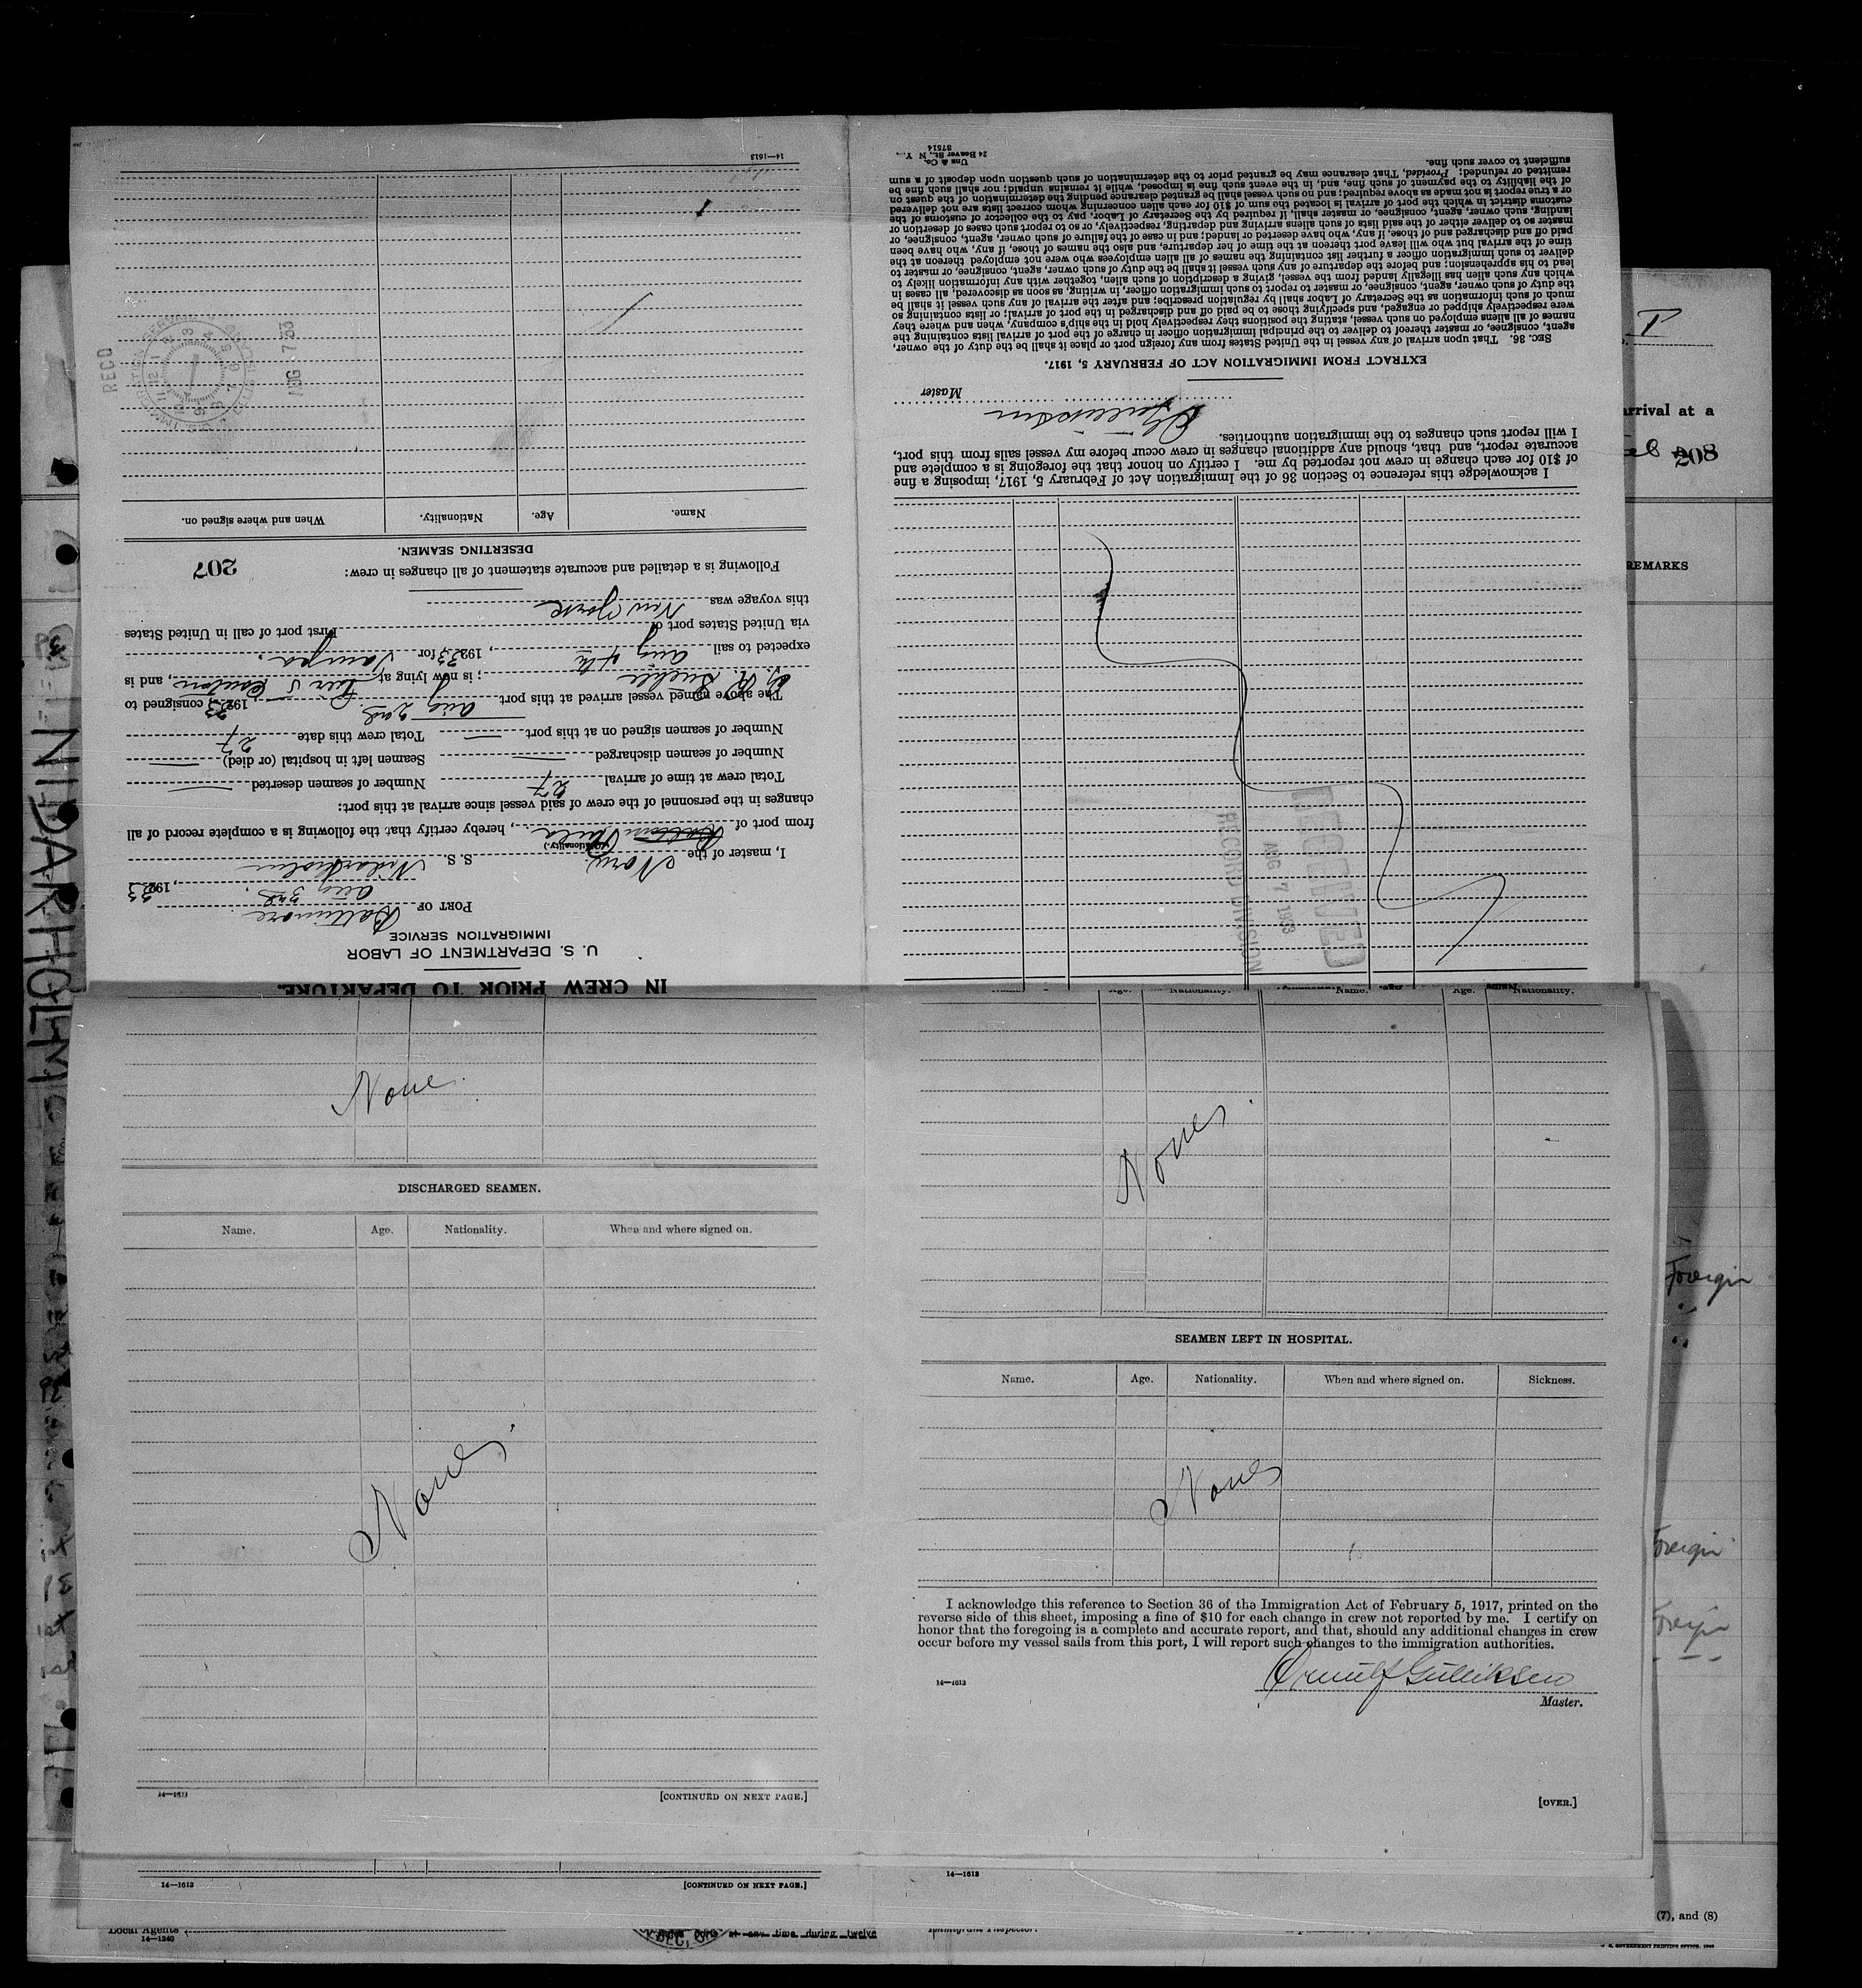 IN CREW PRIOR TO DEPARTURE.
U. S. DEPARTMENT OF LABOR
IMMIGRATION SERVICE
PORT OF Baltimore
Aug 3rd, 1933
I, master of the Norw. S. S. Nidarholm
(Nationality.)
from port of, hereby certify that the following is a complete record of all
changes in the personnel of the crew of said vessel since arrival at this port:
Total crew at time of arrival 27 Number of seamen deserted
Number of seamen discharged Seamen left in hospital (or died)
Number of seamen signed on at this port Total crew this date 27
The above named vessel arrived at this port Aug 2nd, 1923 consigned to
; is now lying at Pier 5, and is
expected to sail Aug 4th, 1923 for Tampa.
via United States port of First port of call in United States
this voyage was New York
Following is a detailed and accurate statement of all changes in crew:
207
DESERTING SEAMEN.
Name. Age. Nationality. When and where signed on.
RECD
AUG 7 33
14—1613
Name. Age. Nationality.
RECEIVED
AUG 7 1933
RECORD DIVISION
I acknowledge this reference to Section 36 of the Immigration Act of February 5, 1917, imposing a fine
of $10 for each change in crew not reported by me. I certify on honor that the foregoing is a complete and
accurate report, and that, should any additional changes in crew occur before my vessel sails from this port,
I will report such changes to the immigration authorities.
Master
EXTRACT FROM IMMIGRATION ACT OF FEBRUARY 5, 1917.
SEC. 36. That upon arrival of any vessel in the United States from any foreign port or place it shall be the duty of the owner,
agent, consignee, or master thereof to deliver to the principal immigration officer in charge of the port of arrival lists containing the
names of all aliens employed on such vessel, stating the positions they respectively hold in the ship's company, when and where they
were respectively shipped or engaged, and specifying those to be paid off and discharged in the port of arrival; or lists containing so
much of such information as the Secretary of Labor shall by regulation prescribe; and after the arrival of any such vessel it shall be
the duty of such owner, agent, consignee, or master to report to such immigration officer, in writing, as soon as discovered, all cases in
which any such alien has illegally landed from the vessel, giving a description of such alien, together with any information likely to
lead to his apprehension; and before the departure of any such vessel it shall be the duty of such owner, agent, consignee, or master to
deliver to such immigration officer a further list containing the names of all alien employees who were not employed thereon at the
time of the arrival but who will leave port thereon at the time of her departure, and also the names of those, if any, who have been
paid off and discharged and of those, if any, who have deserted or landed; and in case of the failure of such owner, agent, consignee, or
master so to deliver either of the said lists of such aliens arriving and departing, respectively, or so to report such cases of desertion or
landing, such owner, agent, consignee, or master, shall, if required by the Secretary of Labor, pay to the collector of customs of the
customs district in which the port of arrival is located the sum of $10 for each alien concerning whom correct lists are not delivered
or a true report is not made as above required; and no such vessel shall be granted clearance pending the determination of the quest on
of the liability to the payment of such fine, and, in the event such fine is imposed, while it remains unpaid; nor shall such fine be
remitted or refunded: Provided, That clearance may be granted prior to the determination of such question upon deposit of a sum
sufficient to cover such fine.
Unz & Co.
24 Beaver St., N. Y.
87514
I
arrival at a
208
REMARKS
NIDARHOLM
None.
DISCHARGED SEAMEN.
Name. Age. Nationality. When and where signed on.
None.
14—1613 [CONTINUED ON NEXT PAGE.]
None.
SEAMEN LEFT IN HOSPITAL.
Name. Age. Nationality. When and where signed on. Sickness.
None
I acknowledge this reference to Section 36 of the Immigration Act of February 5, 1917, printed on the
reverse side of this sheet, imposing a fine of $10 for each change in crew not reported by me. I certify on
honor that the foregoing is a complete and accurate report, and that, should any additional changes in crew
occur before my vessel sails from this port, I will report such changes to the immigration authorities.
Ornulf Gulliksen
14—1613
Master.
[OVER.]
Foreign
Foreign
Foreign
14—1613 [CONTINUED ON NEXT PAGE.]
14—1613
(7), and (8)
Local Agents
14—1240
at any time during twelve
Immigrant Inspector.
U. S. GOVERNMENT PRINTING OFFICE